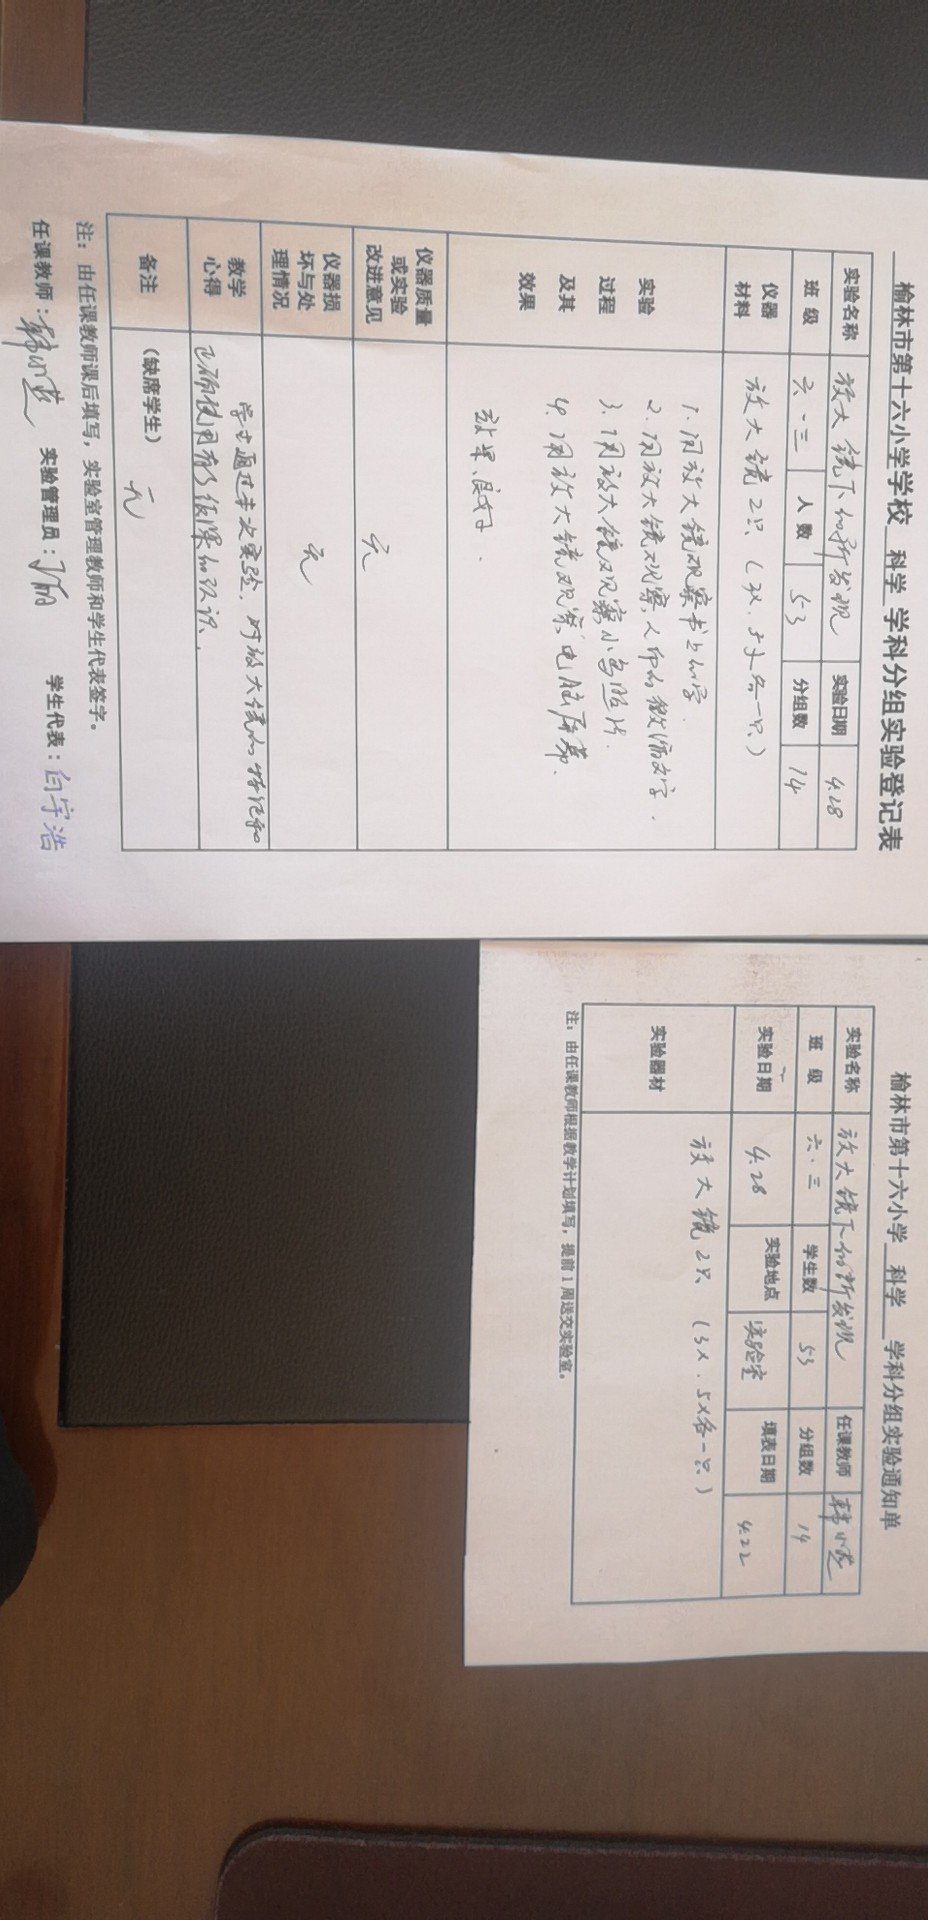 榆林市第十六小学学校 科学 学科分组实验登记表
实验名称 放大镜下的新发现 实验日期 4.28
班 级 六.三 人 数 53 分组数 14
仪器材料 放大镜2只(3X.5X各一只)
实验过程及其效果
1.用放大镜观察书上的字.
2.用放大镜观察人币的微缩文字.
3.用放大镜观察小鸟照片.
4.用放大镜观察电脑屏幕.
效果良好.
仪器质量或实验改进意见 无
仪器损坏与处理情况 无
教学心得 学生通过本次实验.对放大镜的
正确使用有了很深的认识.
备注 (缺席学生) 无
注:由任课教师课后填写,实验室管理教师和学生代表签字。
任课教师: 实验管理员: 学生代表:白宇浩
榆林市第十六小学 科学 学科分组实验通知单
实验名称 放大镜下的新发现 任课教师
班 级 六.三 学生数 53 分组数 14
实验日期 4.28 实验地点 实验室 填表日期 4.22
实验器材 放大镜2只(3X.5X各一只)
注:由任课教师根据教学计划填写,提前1周送交实验室。